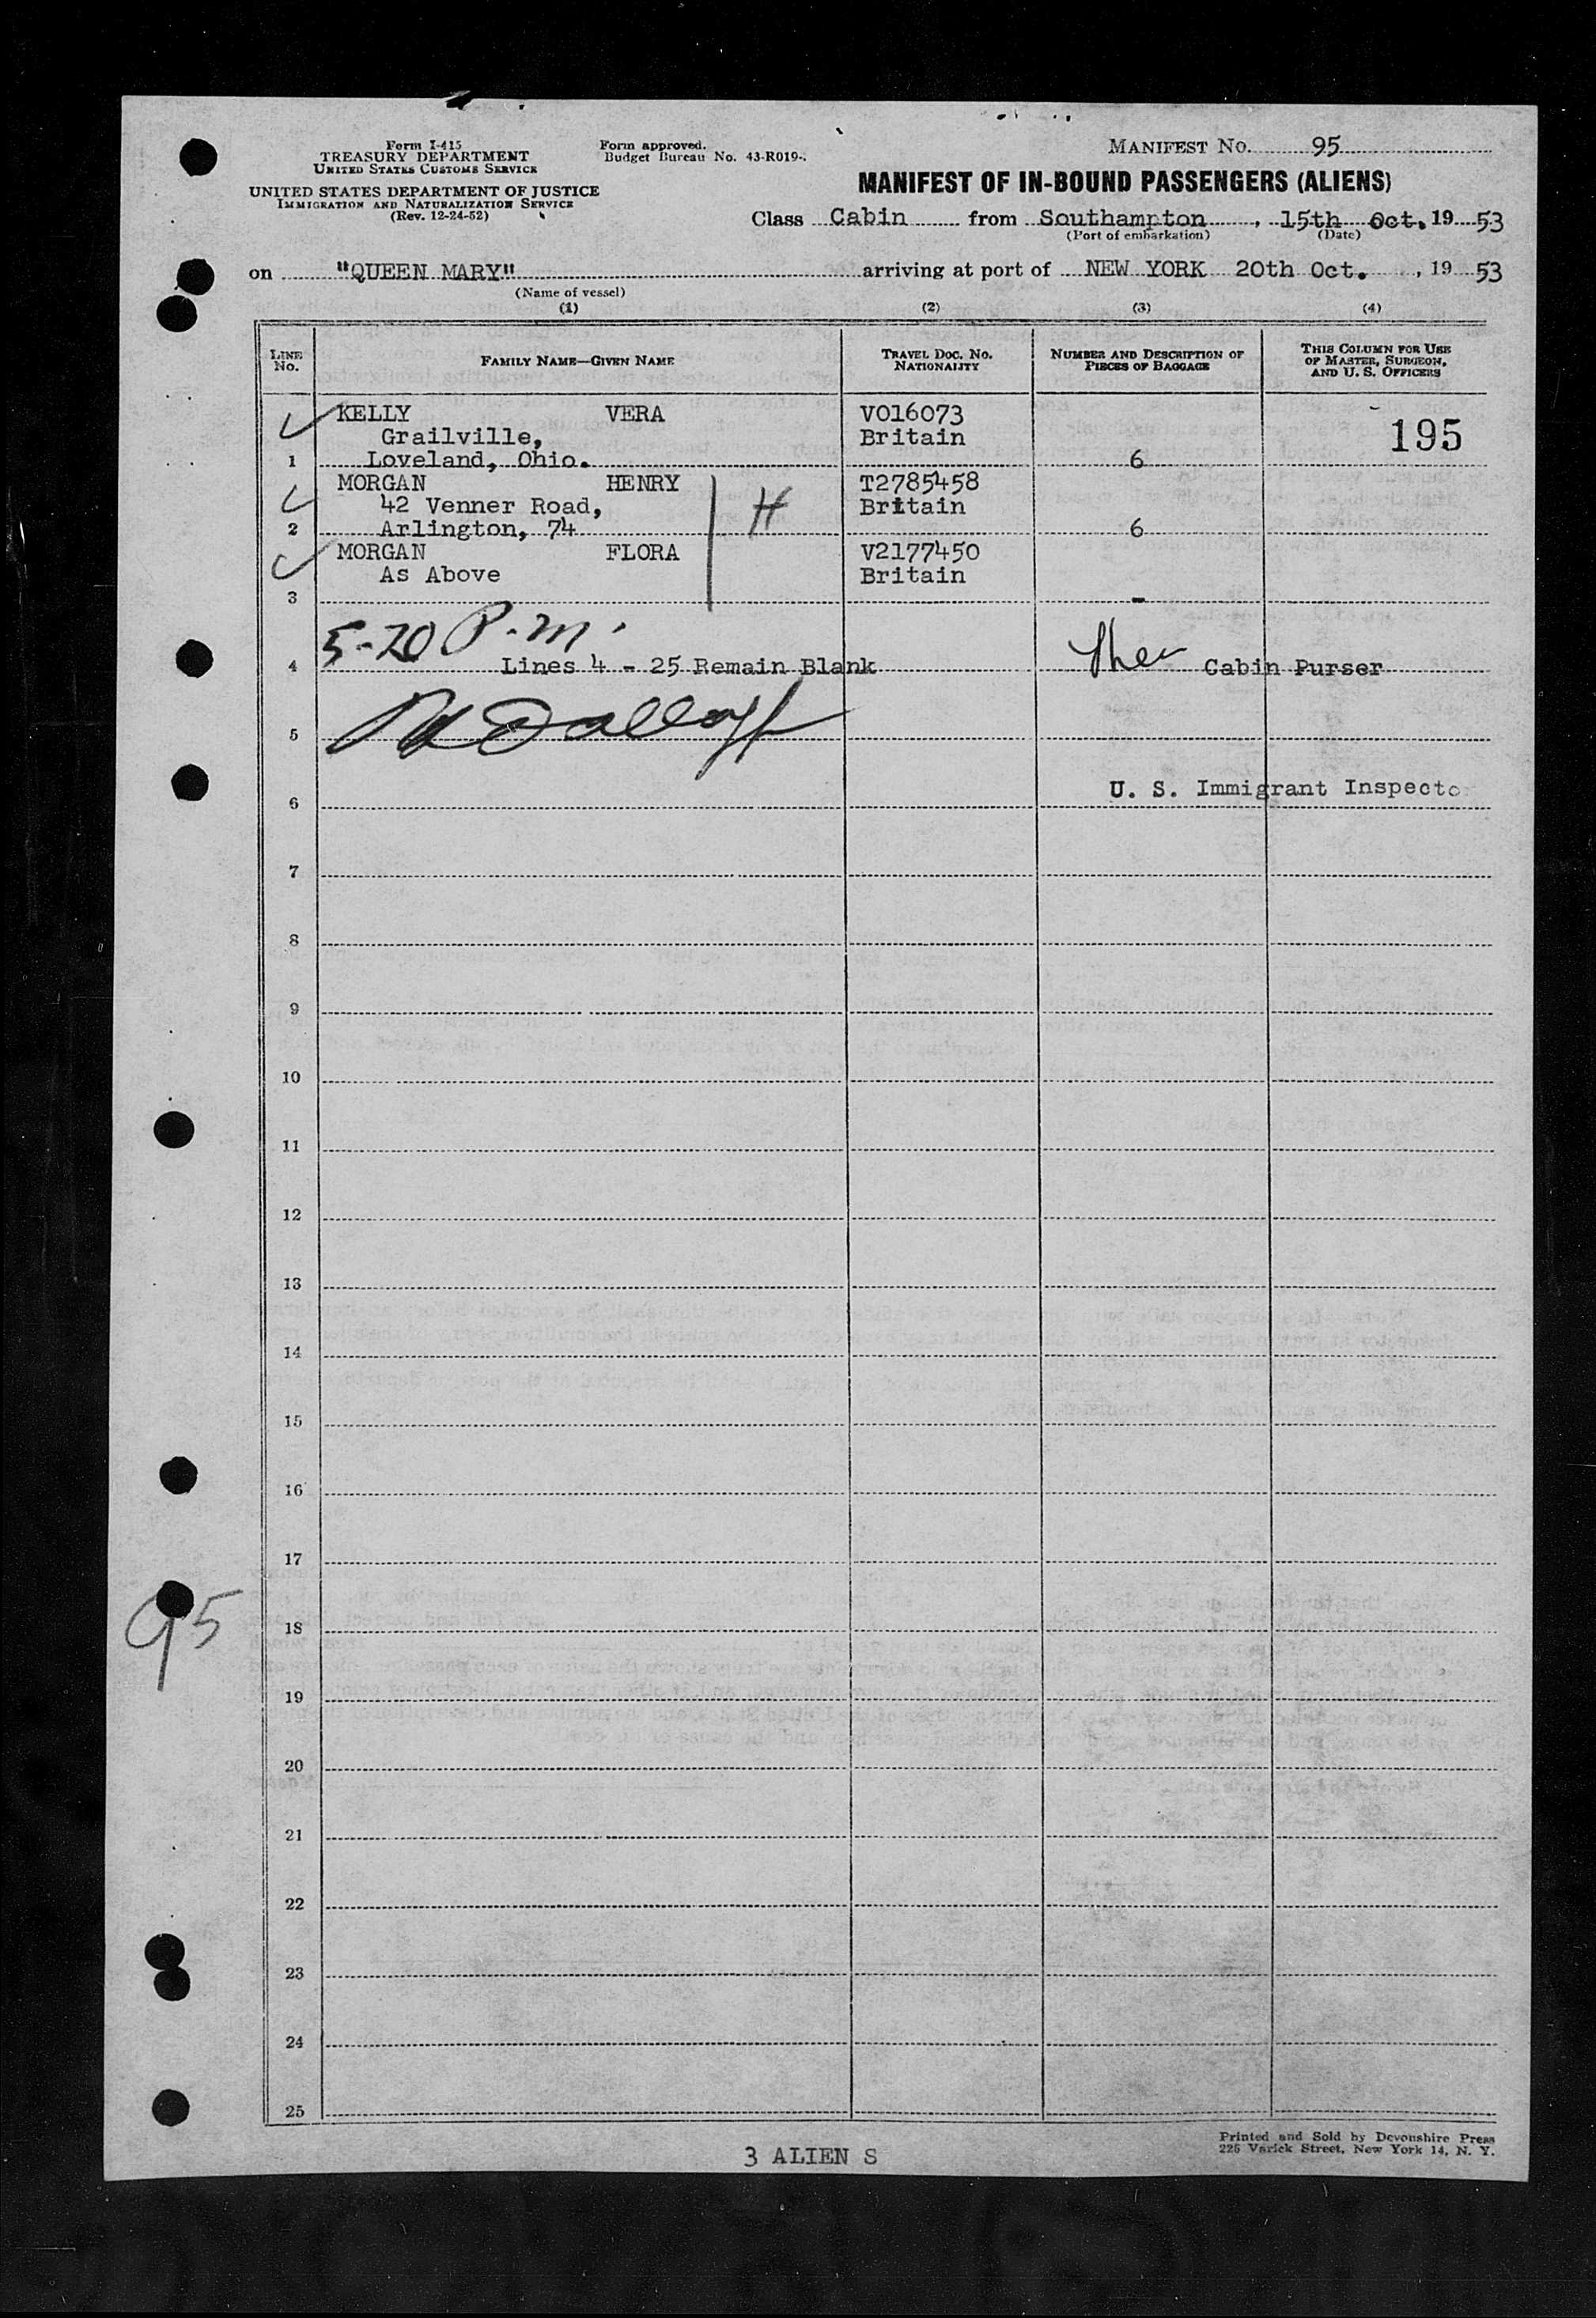 Form I-415
TREASURY DEPARTMENT
UNITED STATES CUSTOMS SERVICE
UNITED STATES DEPARTMENT OF JUSTICE
IMMIGRATION AND NATURALIZATION SERVICE
(Rev. 12-24-52)
Form approved.
Budget Bureau No. 43-R019-
MANIFEST No. 95
MANIFEST OF IN-BOUND PASSENGERS (ALIENS)
Class Cabin from Southampton, 15th Oct. 19 53
(Port of embarkation) (Date)
on "QUEEN MARY" arriving at port of NEW YORK 20th Oct., 19 53
(Name of vessel)
(1) (2) (3) (4)
LINE No. FAMILY NAME—GIVEN NAME TRAVEL DOC. NO. NATIONALITY NUMBER AND DESCRIPTION OF PIECES OF BAGGAGE THIS COLUMN FOR USE OF MASTER, SURGEON, AND U. S. OFFICERS
KELLY VERA V016073 195
Grailville, Britain
1 Loveland, Ohio. 6
MORGAN HENRY T2785458
42 Venner Road, H Britain
2 Arlington, 74 6
MORGAN FLORA V2177450
As Above Britain
3 -
5-20 P.m.
4 Lines 4 - 25 Remain Blank Cabin Purser
5
U. S. Immigrant Inspecto
6
7
8
9
10
11
12
13
14
15
16
17
95
18
19
20
21
22
23
24
25
3 ALIEN S
Printed and Sold by Devonshire Press
225 Varick Street, New York 14, N. Y.